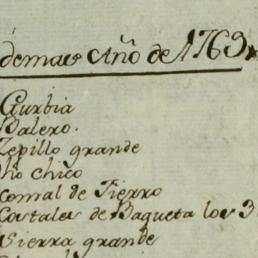 demas Año de 1769
Gurbia
Balero.
Zepillo grande
dho chico
Comal de Fierro
Costales de Baqueta los 3
Sierra grande